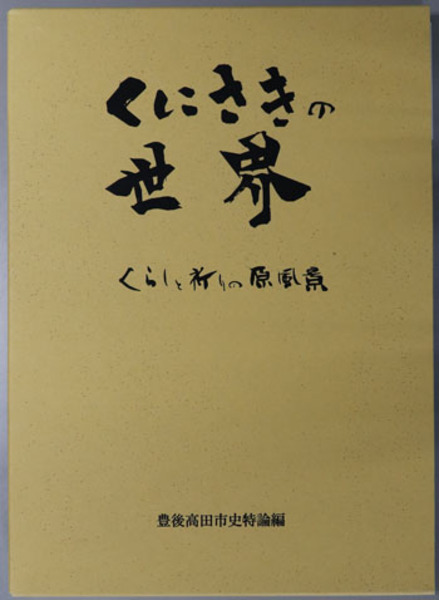 くにさきの
世界
くらしと祈りの原風景
豊後高田市史特論編